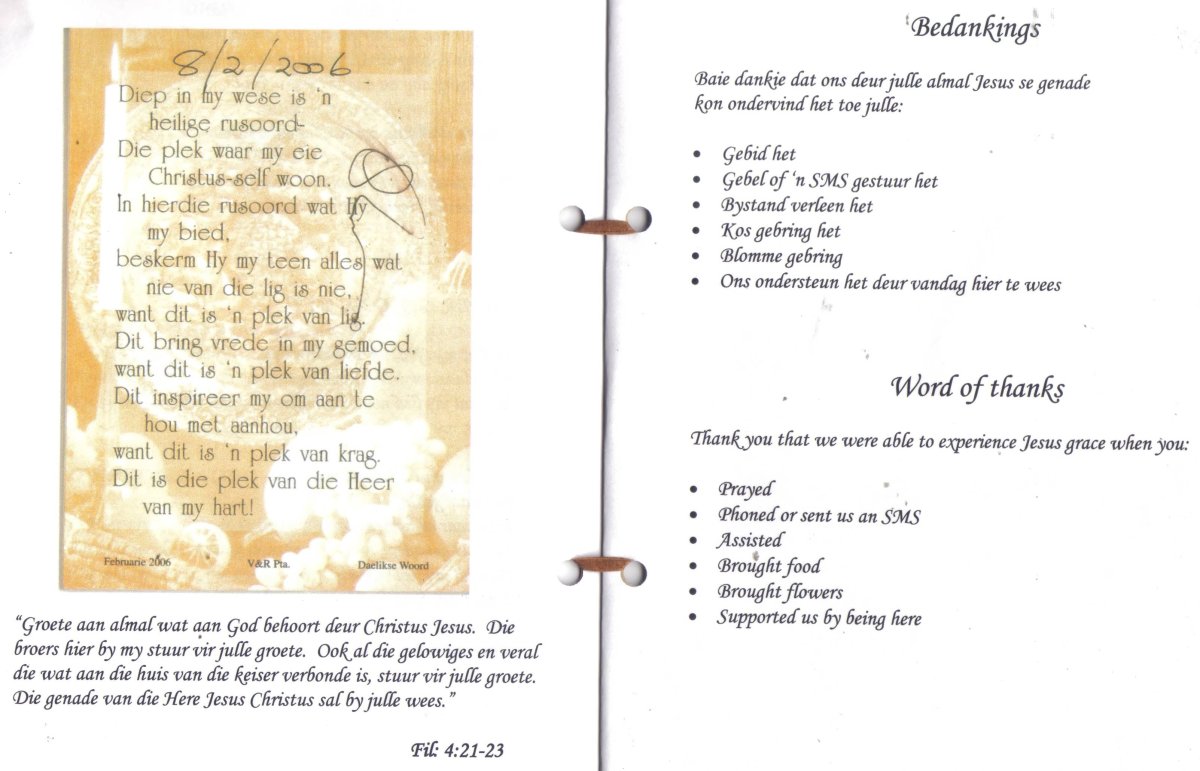 8/2/2006
Diep in my wese is 'n
heilige rusoord-
Die plek waar my eie
Christus-self woon.
In hierdie rusoord wat Hy
my bied,
beskerm Hy my teen alles wat
nie van die lig is nie,
want dit is 'n plek van lig.
Dit bring vrede in my gemoed,
want dit is 'n plek van liefde.
Dit inspireer my om aan te
hou met aanhou,
want dit is 'n plek van krag.
Dit is die plek van die Heer
van my hart!
Februarie 2006 V&R Pta. Daelikse Woord
"Groete aan almal wat aan God behoort deur Christus Jesus. Die
broers hier by my stuur vir julle groete. Ook al die gelowiges en veral
die wat aan die huis van die keiser verbonde is, stuur vir julle groete.
Die genade van die Here Jesus Christus sal by julle wees."
Fil: 4:21-23
Bedankings
Baie dankie dat ons deur julle almal Jesus se genade
kon ondervind het toe julle:
• Gebid het
• Gebel of 'n SMS gestuur het
• Bystand verleen het
• Kos gebring het
• Blomme gebring
• Ons ondersteun het deur vandag hier te wees
Word of thanks
Thank you that we were able to experience Jesus grace when you:
• Prayed
• Phoned or sent us an SMS
• Assisted
• Brought food
• Brought flowers
• Supported us by being here